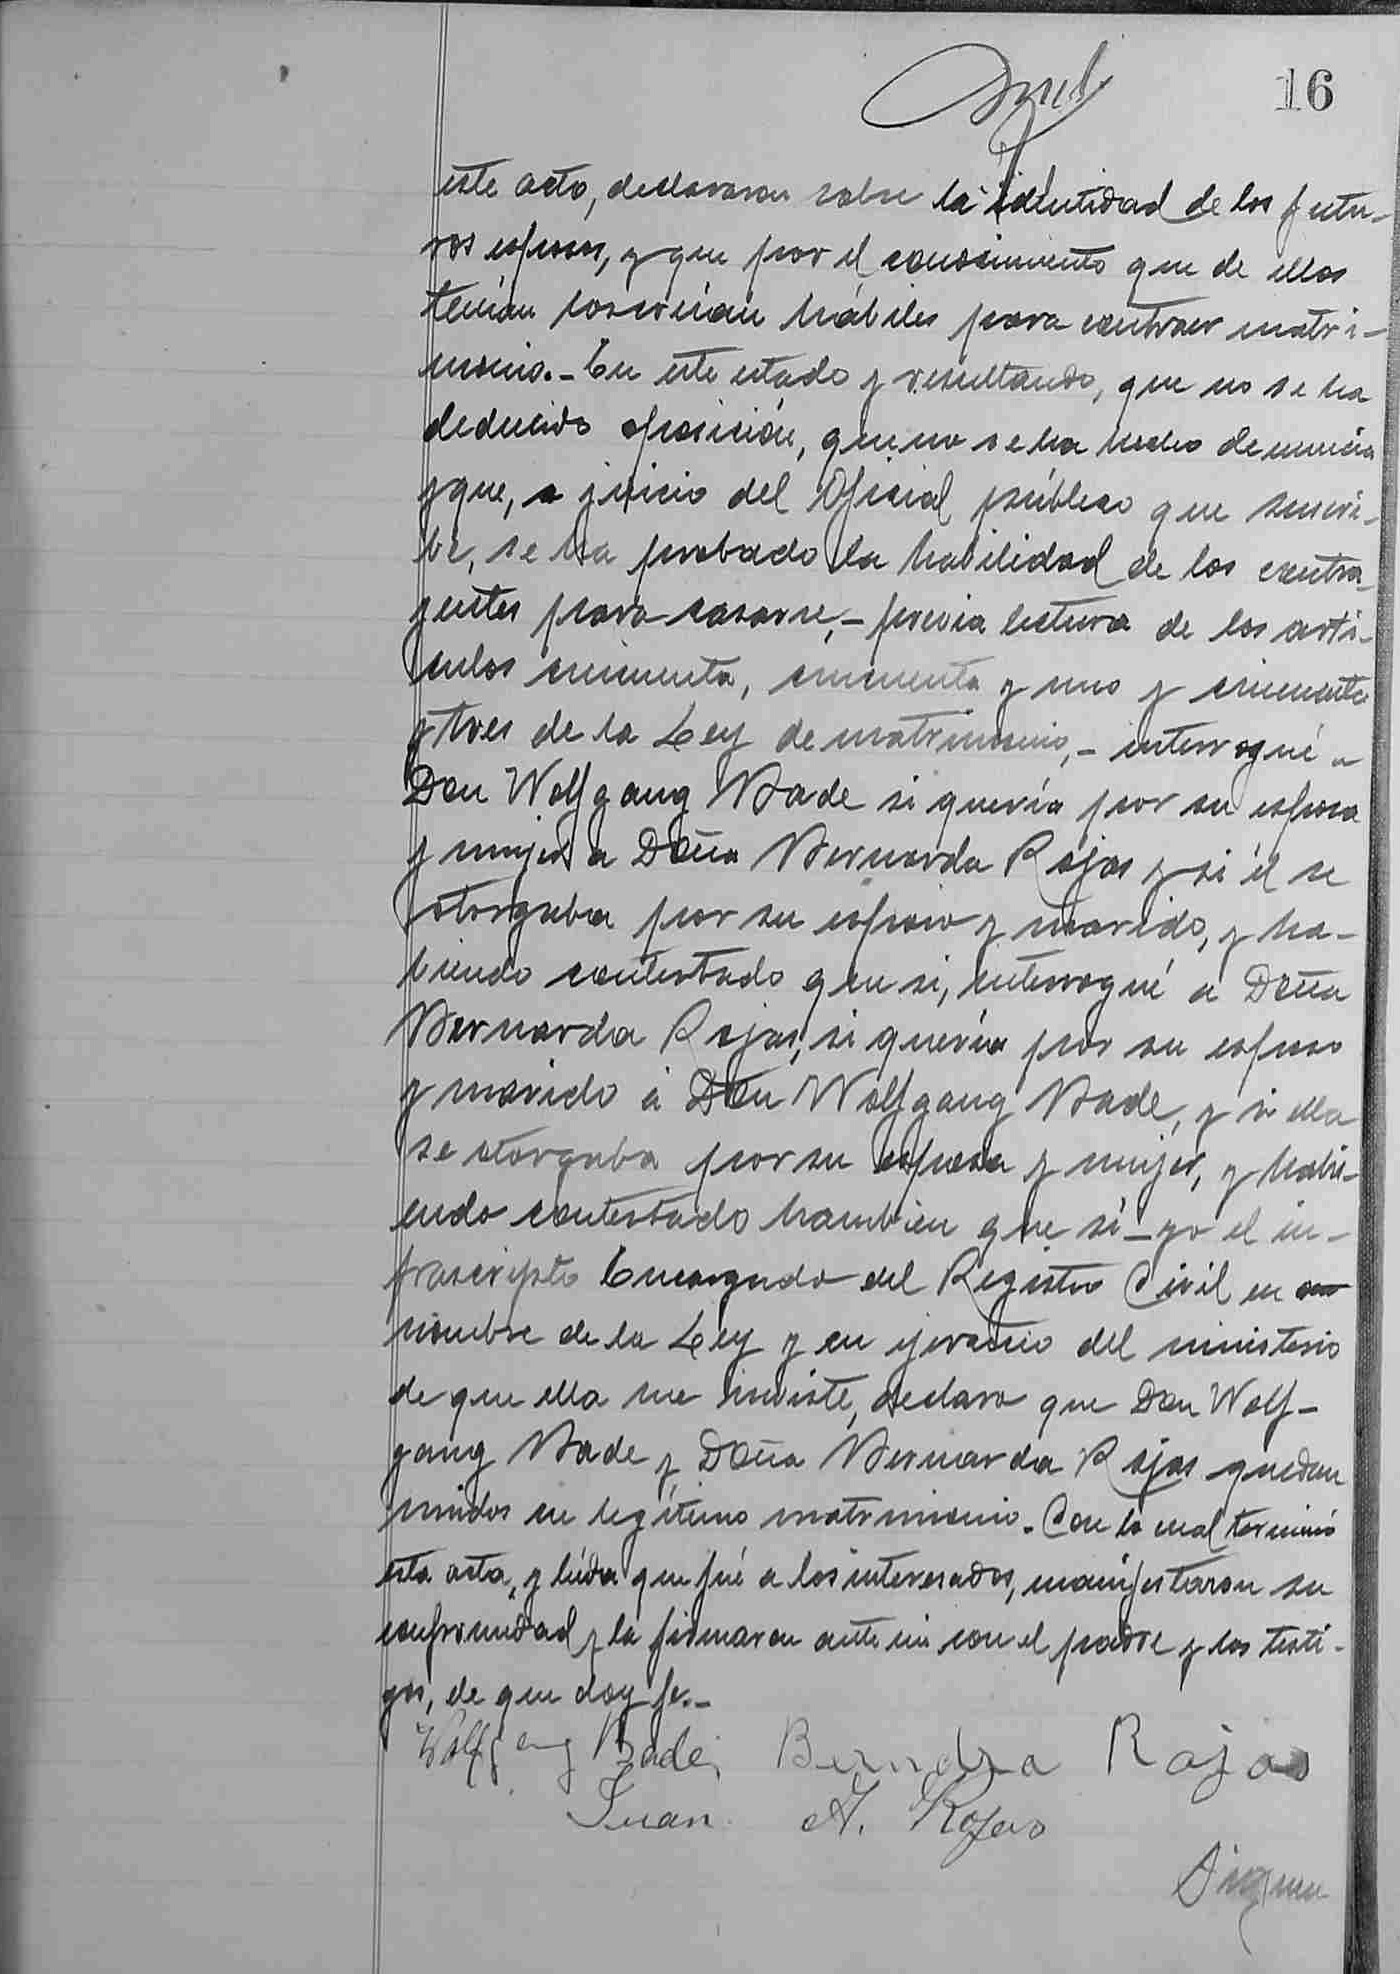 16
este acto, declararon sobre la identidad de los futu-
ros esposos, y que por el conocimiento que de ellos
tenían los creían hábiles para contraer matri-
monio.- En este estado y resultando, que no se ha
deducido oposición, que no se ha hecho denuncia
y que, a juicio del Oficial público que suscri-
be, se ha probado la habilidad de los contra-
yentes para casarse,- previa lectura de los artí-
culos cincuenta, cincuenta y uno y cincuenta
y tres de la Ley de matrimonio,- interrogué a
Don Wolfgang Bade si quería por su esposa
y mujer a Doña Bernarda Rojas y si él se
otorgaba por su esposo y marido, y ha-
biendo contestado que si, interrogué a Doña
Bernarda Rojas, si quería por su esposo
y marido á Don Wolfgang Bade, y si ella
se otorgaba por su esposa y mujer, y habi-
endo contestado tambien que sí - yo el in-
frascripto Encargado del Registro Civil en
nombre de la Ley y en ejercicio del ministerio
de que ella me inviste, declaro que Don Wolf-
gang Bade y Doña Bernarda Rojas quedan
unidos en legítimo matrimonio. Con lo cual terminó
esta acta, y leída que fué a los interesados, manifestaron su
conformidad y la firmaron ante mi con el padre y los testi-
gos, de que doy fe.-
Wolfgang Bade, Berndra Rojas
Juan A. Rojas
Siguen